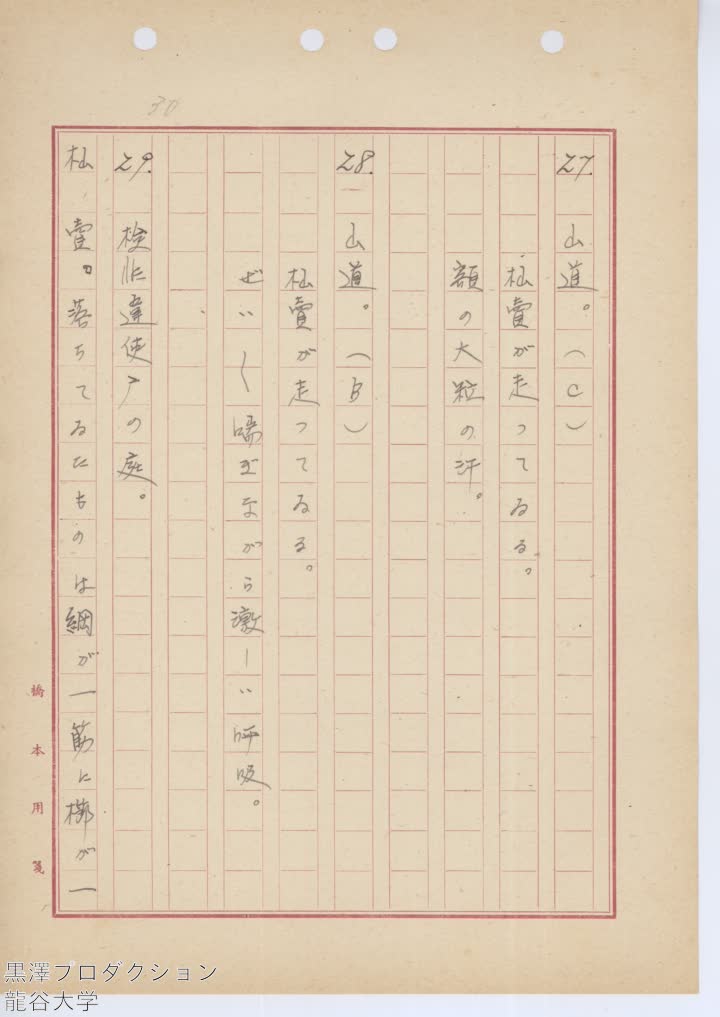 30
27. 山道。(C)
杣賣が走つてゐる。
額の大粒の汗。
28. 山道。(B)
杣賣が走つてゐる。
ぜい〱喘ぎながら激しい呼吸。
29. 検非違使庁の庭。
杣賣。落ちてゐたものは綱が一筋に櫛が一
橋本用箋
黒澤プロダクション
龍谷大学